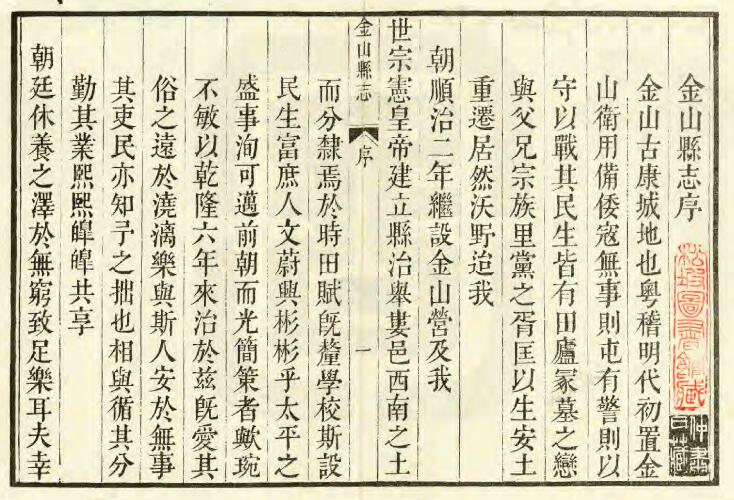 金山縣志序
金山古康城地也粵稽明代初置金
山衛用備倭寇無事則屯有警則以
守以戰其民生皆有田廬冢墓之戀
與父兄宗族里黨之胥匡以生安土
重遷居然沃野迨我
朝順治二年繼設金山營及我
世宗憲皇帝建立縣治舉婁邑西南之土
金山縣志
序
一
而分隸焉於時田賦旣釐學校斯設
民生富庶人文蔚興彬彬乎太平之
盛事洵可邁前朝而光簡策者歟琬
不敏以乾隆六年來治於茲旣愛其
俗之遠於澆漓樂與斯人安於無事
其吏民亦知予之拙也相與循其分
勤其業熙熙皥皥共享
朝廷休養之澤於無窮致足樂耳夫幸